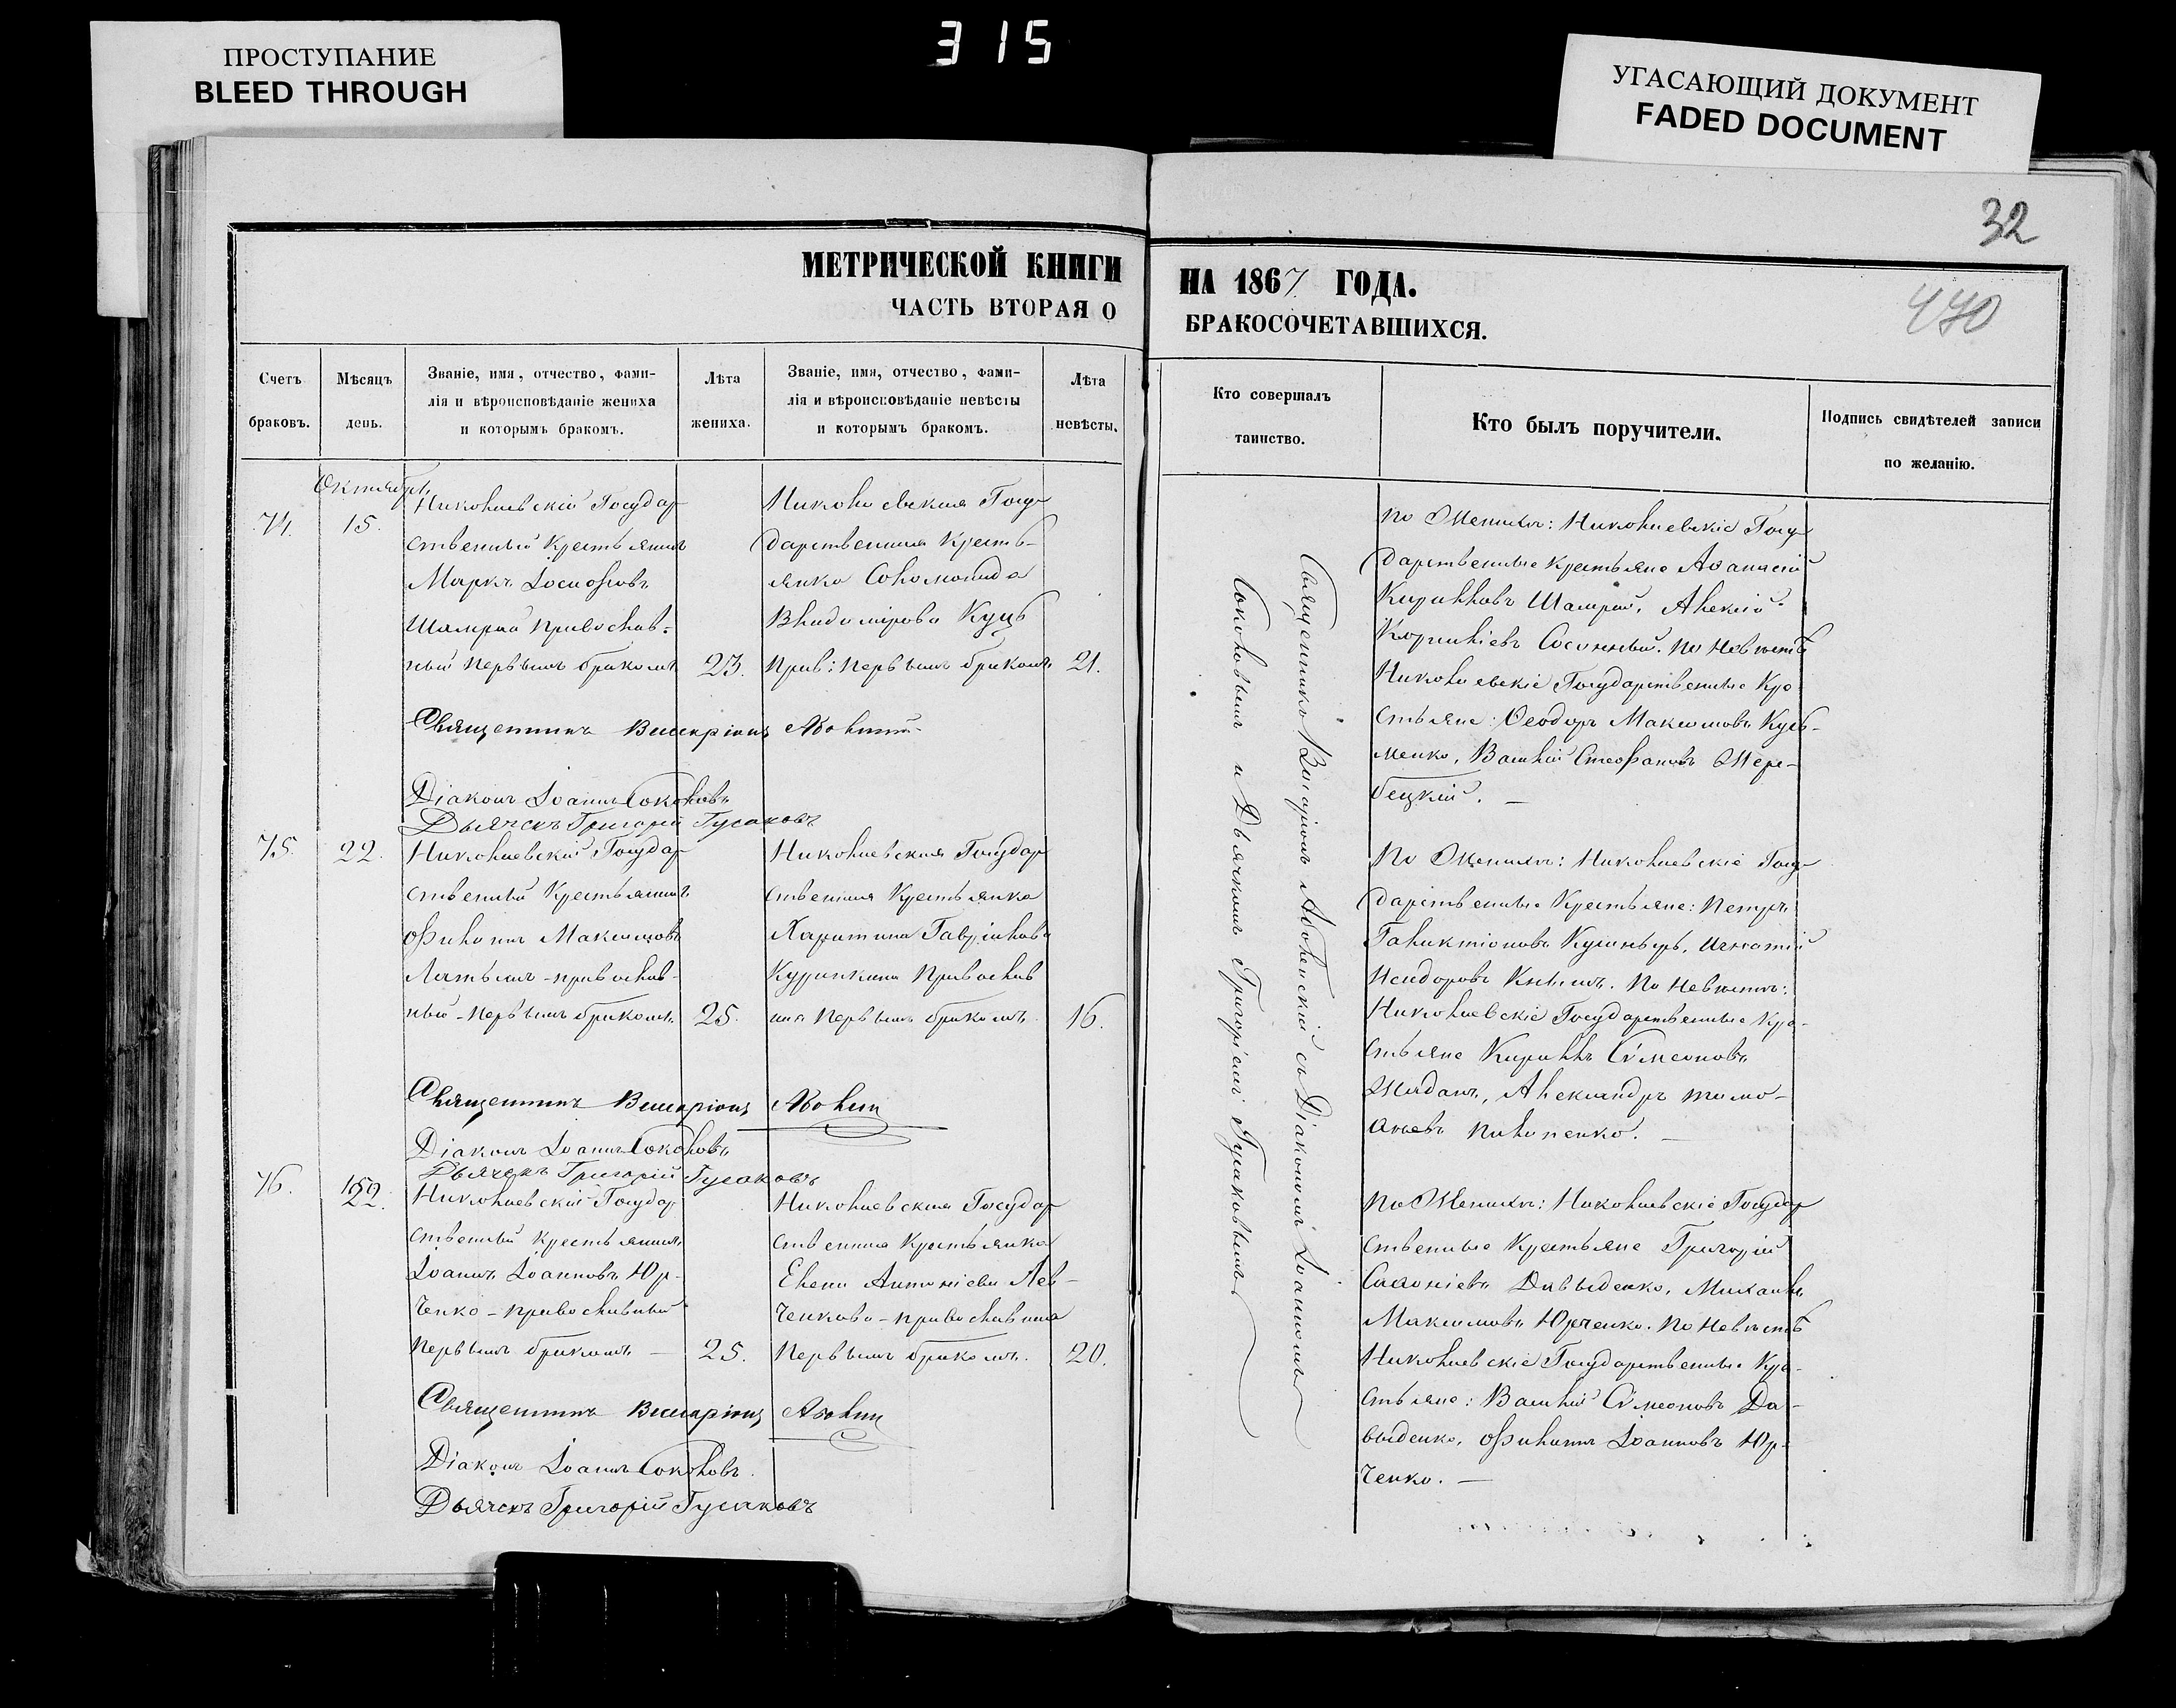 ПРОСТУПАНИЕ
BLEED THROUGH
315
УГАСАЮЩИЙ ДОКУМЕНТ
FADED DOCUMENT
32
470
МЕТРИЧЕСКОЙ КНИГИ
НА 1867 ГОДА.
ЧАСТЬ ВТОРАЯ О
БРАКОСОЧЕТАВШИХСЯ.
Счетъ браковъ.
Мѣсяцъ день.
Званіе, имя, отчество, фами-
лія и вѣроисповѣданіе жениха
и которымъ бракомъ.
Лѣта жениха.
Званіе, имя, отчество, фами-
лія и вѣроисповѣданіе невѣсты
и которымъ бракомъ.
Лѣта невѣсты.
Кто совершалъ
таинство.
Кто былъ поручители.
Подпись свидѣтелей записи
по желанію.
Октября
74. 15.
Николаевскій Государ
ственный Крестьянинъ
Маркъ Іосифовъ
Шамрай православ-
ный первымъ бракомъ
23.
Николаевская Госу
дарственная Кресть-
янка Соломонида
Владимірова Куцъ
прав: первымъ бракомъ
21.
Священникъ Виссаріонъ
Діаконъ Іоаннъ Соколовъ
Дьячекъ Григорій Гусаковъ
75. 22.
Николаевскій Государ
ственный Крестьянинъ
Филиппъ Максимовъ
православ-
ный первымъ бракомъ
25.
Николаевская Государ
ственная Крестьянка
Харитина Гавріилова
православ
ная первымъ бракомъ
16.
Священникъ Виссаріонъ
Діаконъ Іоаннъ Соколовъ
Дьячекъ Григорій Гусаковъ
76.
Николаевскій Государ
ственный Крестьянинъ
Іоаннъ Іоанновъ Юр-
ченко - православный
первымъ бракомъ —
25.
Николаевская Государ
ственная Крестьянка
Елена Антоніева Лев-
ченкова - православная
первымъ бракомъ.
20.
Священникъ Виссаріонъ
Діаконъ Іоаннъ Соколовъ.
Дьячекъ Григорій Гусаковъ
Священникъ Виссаріонъ съ Діакономъ Іоанномъ
Соколовымъ и Дьячкомъ Григоріемъ Гусаковымъ
По Женихѣ: Николаевскіе Госу
дарственные Крестьяне Афанасій
Кирилловъ Шамрай, Алексій
Корниліевъ. По Невѣстѣ
Николаевскіе Государственные Кре
стьяне: Феодоръ Максимовъ Кузь-
менко, Василій Стефановъ Жере-
бецкій. —
По Женихѣ: Николаевскіе Госу
дарственные Крестьяне: Петръ
Игнатій
Исидоровъ. По Невѣстѣ:
Николаевскіе Государственные Кре-
стьяне Кириллъ Симеоновъ
Жаданъ, Александръ Тимо-
феевъ Пилипенко. —
По Женихѣ: Николаевскіе Государ
ственные Крестьяне Григорій
Давыденко, Михаилъ
Максимовъ Юрченко. По Невѣстѣ
Николаевскіе Государственные Кре-
стьяне: Василій Симеоновъ Да-
выденко, Филиппъ Іоанновъ Юр-
ченко. —